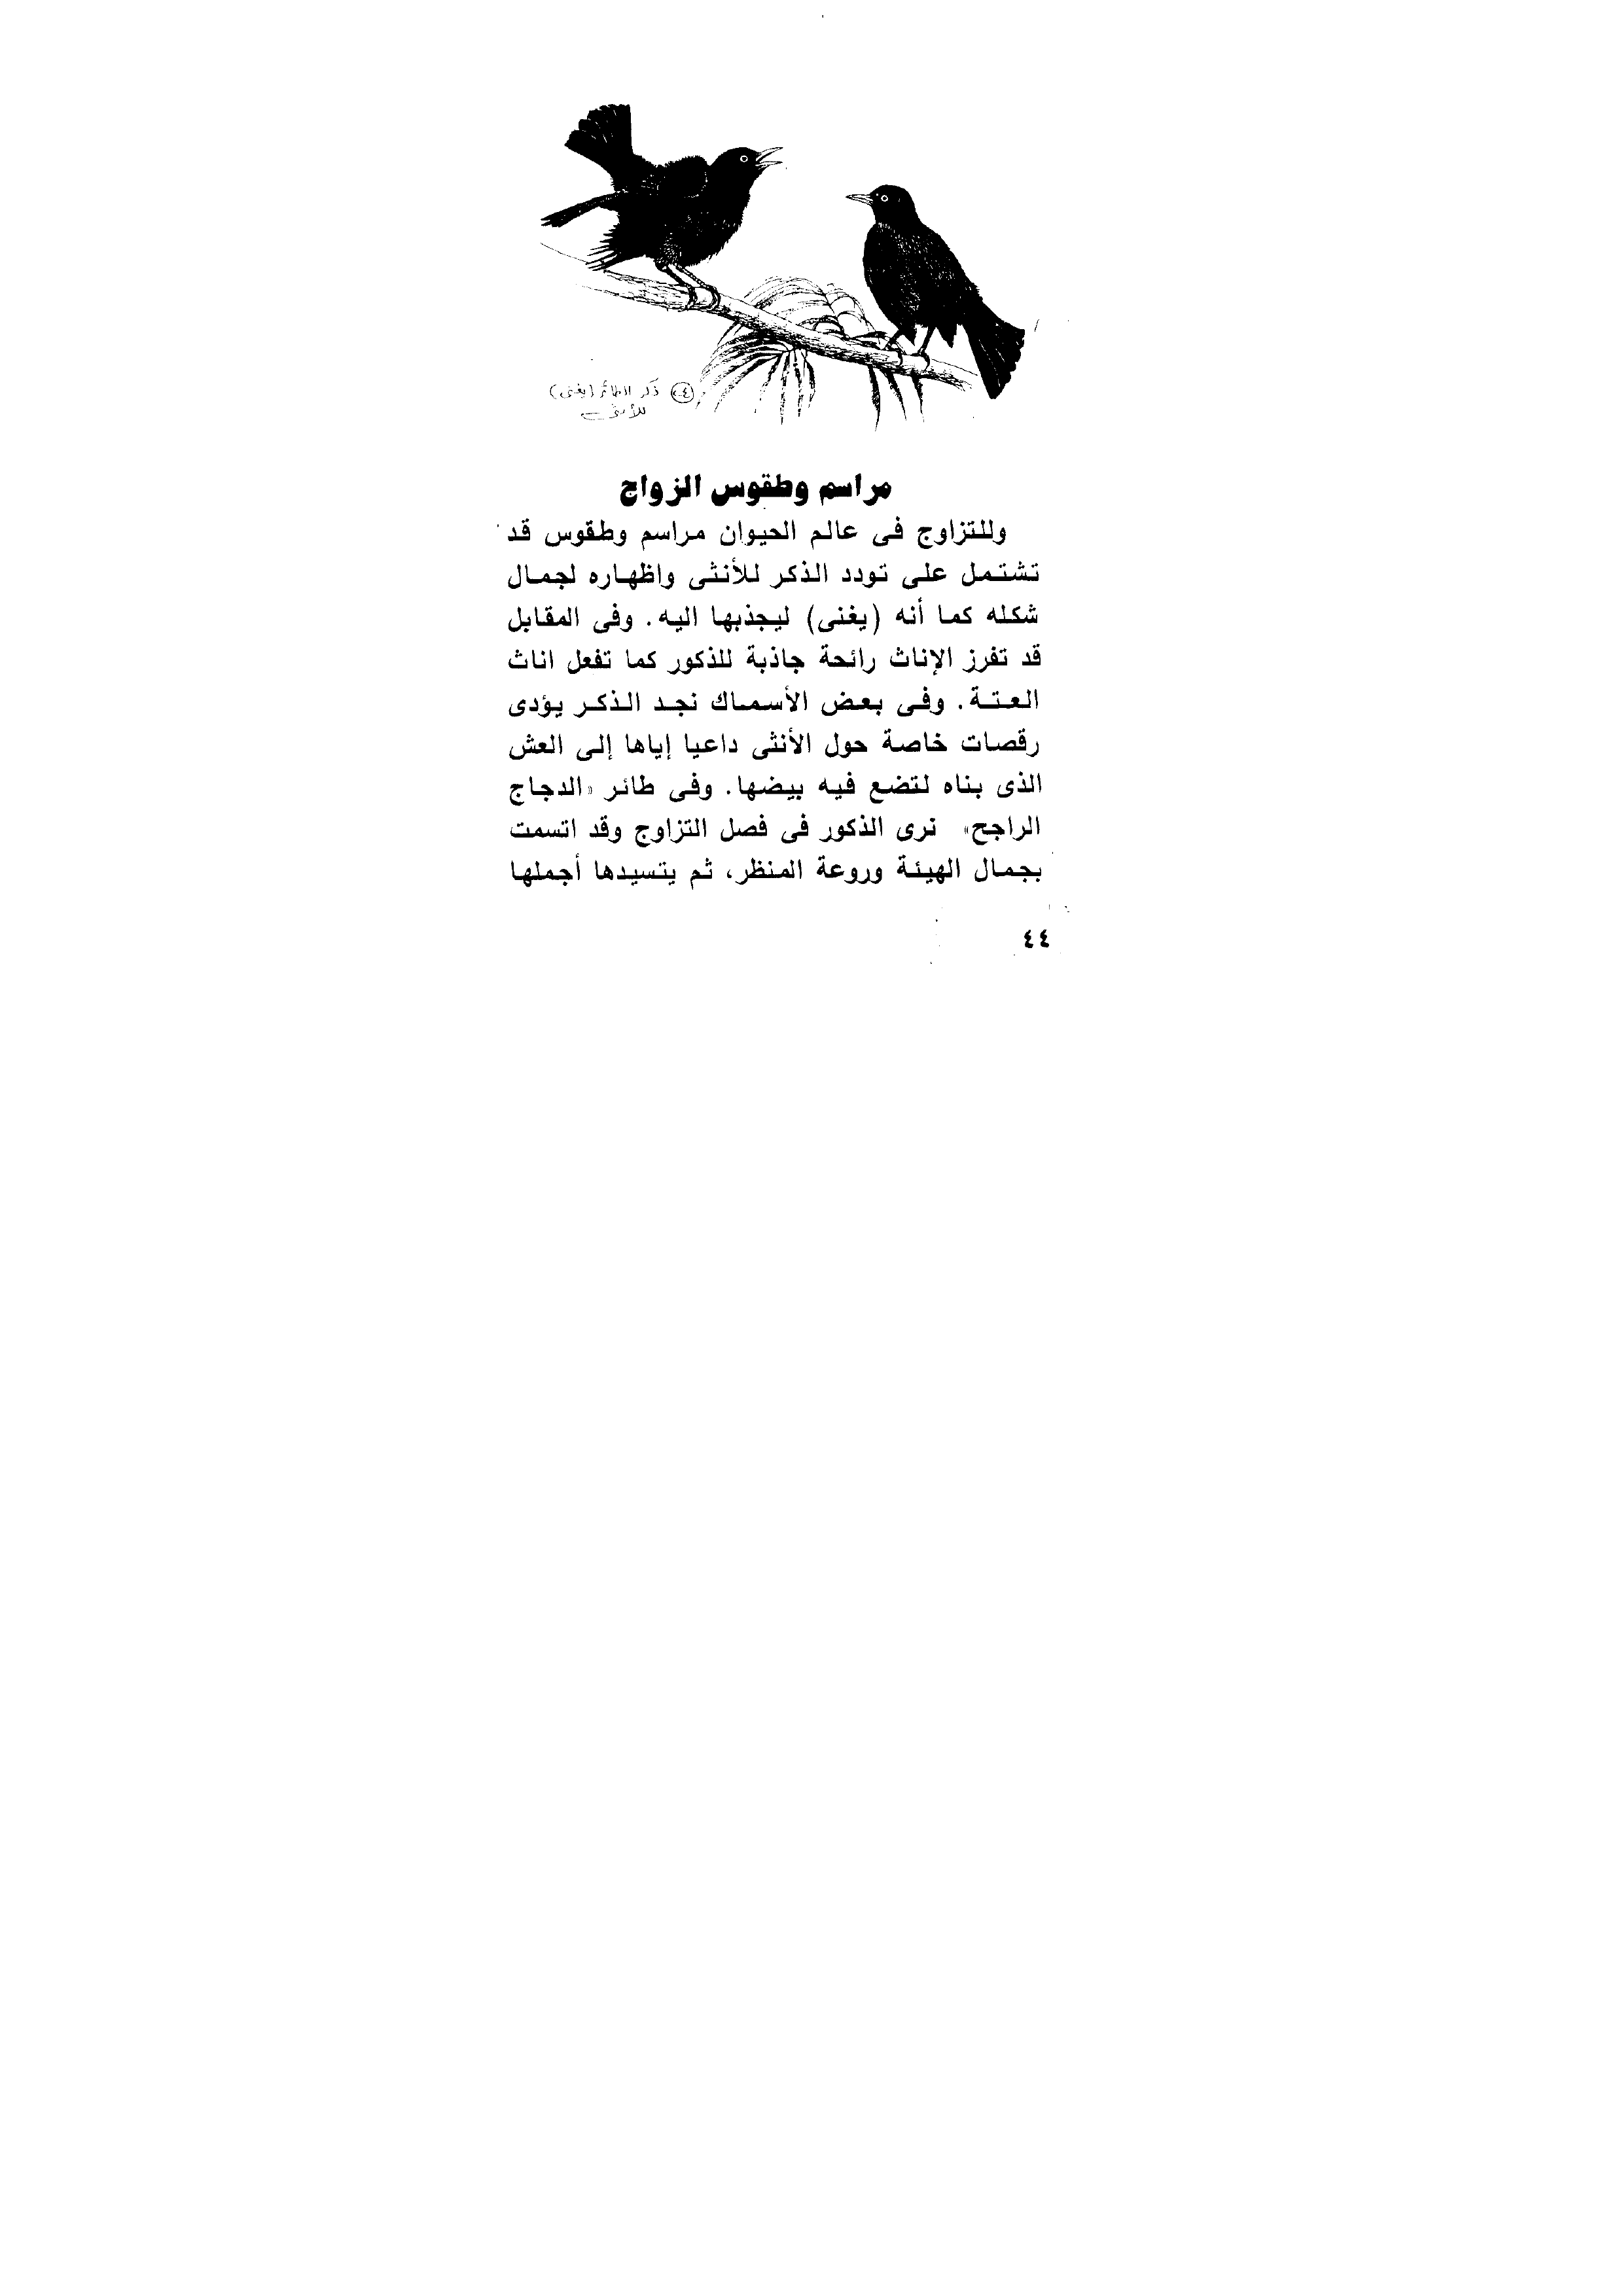 ذكر الطائر (يغنى)
للأنثى
مراسم وطقوس الزواج
وللتزاوج فى عالم الحيوان مراسم وطقوس قد
تشتمل على تودد الذكر للأنثى واظهاره لجمال
شكله كما أنه (يغنى) ليجذبها اليه. وفى المقابل
قد تفرز الإناث رائحة جاذبة للذكور كما تفعل اناث
العتة. وفى بعض الأسماك نجد الذكر يؤدى
رقصات خاصة حول الأنثى داعيا إياها إلى العش
الذى بناه لتضع فيه بيضها. وفى طائر «الدجاج
الراجح» نرى الذكور فى فصل التزاوج وقد اتسمت
بجمال الهيئة وروعة المنظر، ثم يتسيدها أجملها
٤٤